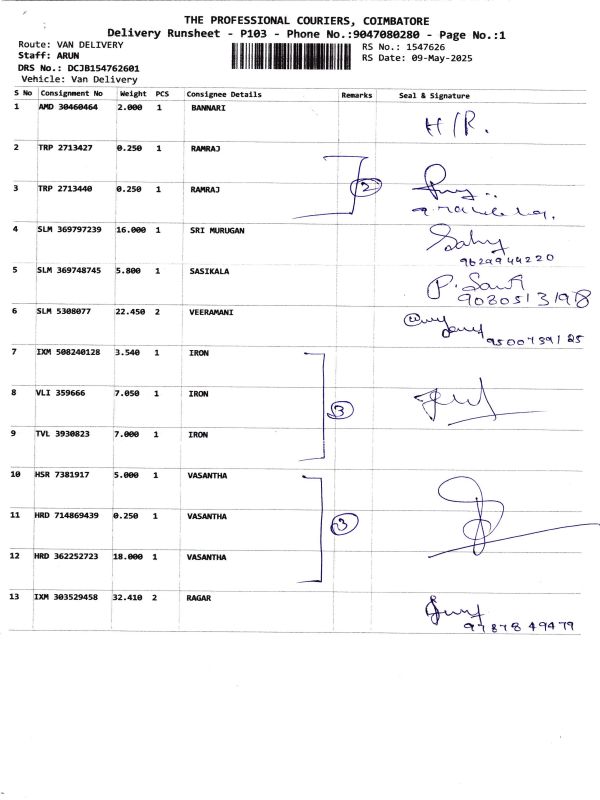 THE PROFESSIONAL COURIERS, COIMBATORE
Delivery Runsheet - P103 - Phone No.:9047080280 - Page No.:1
Route: VAN DELIVERY
RS No.: 1547626
Staff: ARUN
RS Date: 09-May-2025
DRS No.: DCJB154762601
Vehicle: Van Delivery
S No Consignment No Weight PCS Consignee Details Remarks Seal & Signature
1 AMD 30460464 2.000 1 BANNARI H/R.
2 TRP 2713427 0.250 1 RAMRAJ
2
3 TRP 2713440 0.250 1 RAMRAJ
4 SLM 369797239 16.000 1 SRI MURUGAN
9629944220
5 SLM 369748745 5.800 1 SASIKALA
9080513198
6 SLM 5308077 22.450 2 VEERAMANI
9500759125
7 IXM 508240128 3.540 1 IRON
8 VLI 359666 7.050 1 IRON
3
9 TVL 3930823 7.000 1 IRON
10 HSR 7381917 5.000 1 VASANTHA
11 HRD 714869439 0.250 1 VASANTHA 3
12 HRD 362252723 18.000 1 VASANTHA
13 IXM 303529458 32.410 2 RAGAR
9787849479